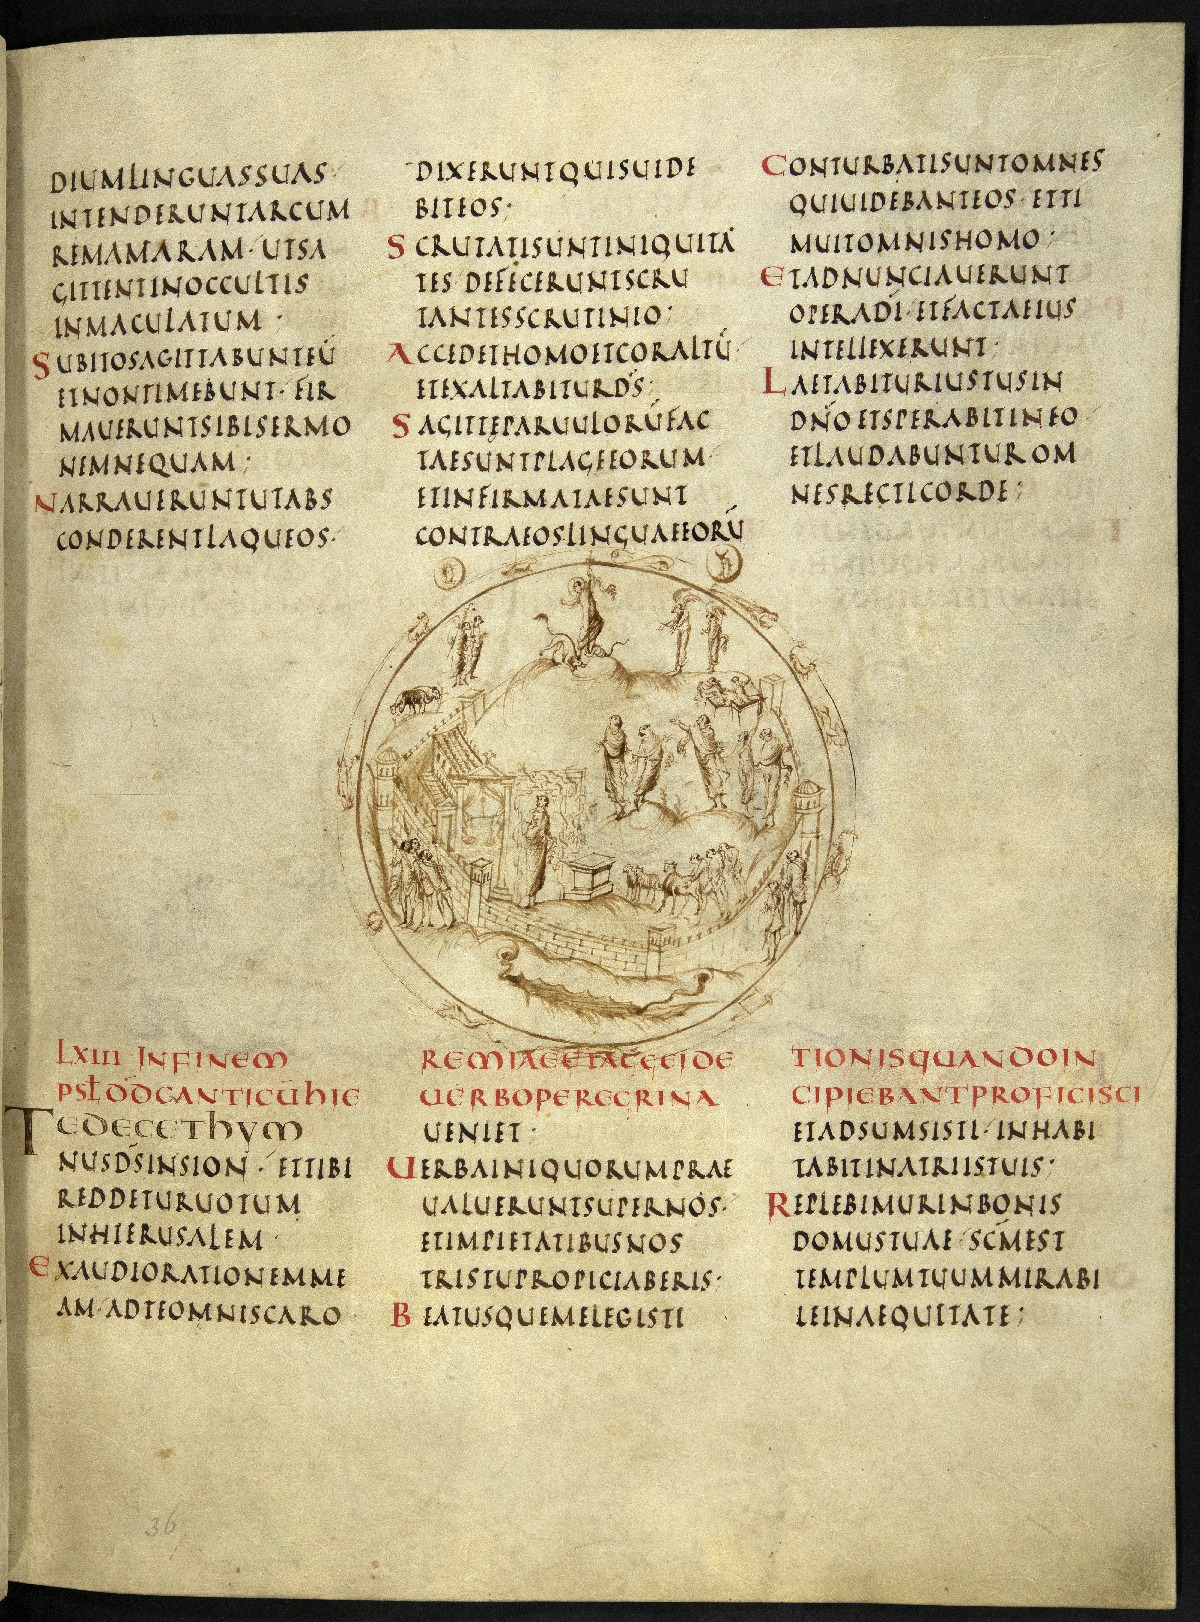 DIUMLINGUASSUAS·
INTENDERUNTARCUM
REMAMARAM· UTSA
GITTENTINOCCULTIS
INMACULATUM ·
SUBITOSAGITTABUNTEŪ
ETNONTIMEBUNT· FIR
MAUERUNTSIBISERMO
NEMNEQUAM;
NARRAUERUNTUTABS
CONDERENTLAQUEOS·
DIXERUNTQUISUIDE
BITEOS;
SCRUTATISUNTINIQUITA
TES· DEFECERUNTSCRU
TANTESSCRUTINIO;
ACCEDETHOMOETCORALTŪ·
ETEXALTABITURD̄S;
SAGITTEPARUULORŪFAC
TAESUNTPLAGEEORUM·
ETINFIRMATAESUNT
CONTRAEOSLINGUAEEORŪ
CONTURBATISUNTOMNES
QUIUIDEBANTEOS· ETTI
MUITOMNISHOMO;
ETADNUNCIAUERUNT
OPERADĪ· ETFACTAEIUS
INTELLEXERUNT;
LAETABITURIUSTUSIN
DN̄OETSPERABITINEO·
ETLAUDABUNTUROM
NESRECTICORDE;
LXIIII INFINEM
PSŁD̄DCANTICŪHIE
REMIAEETAGGEIDE
UERBOPEREGRINA
TIONISQUANDOIN
CIPIEBANTPROFICISCI
TEDECETHYM
NUSD̄SINSION· ETTIBI
REDDETURUOTUM
INHIERUSALEM·
EXAUDIORATIONEMME
AM· ADTEOMNISCARO
UENIET·
UERBAINIQUORUMPRAE
UALUERUNTSUPERNOS·
ETIMPIETATIBUSNOS
TRISTUPROPICIABERIS;
BEATUSQUEMELEGISTI
ETADSUMSISTI· INHABI
TABITINATRIISTUIS;
REPLEBIMURINBONIS
DOMUSTUAE· SC̄MEST
TEMPLUMTUUMMIRABI
LEINAEQUITATE;
36